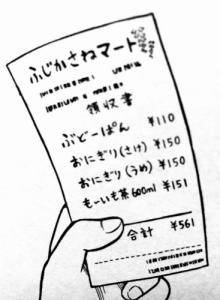 ふじかさねマート
領収書
ぶどーぱん ¥110
おにぎり(さけ) ¥150
おにぎり(うめ) ¥150
もーいも茶600ml ¥151
合計 ¥561